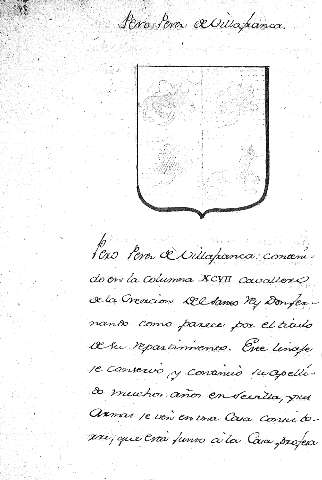 Pero Perez de Villafranca.
Pero Perez de Villafranca: conteni-
do en la Columna XCVII cavallero
de la Creacion del Santo Rey Don fer-
nando como parece por el titulo
de su repartimiento. Este linaje
se conservo, y continuo su apelli-
do muchos años en Sevilla, y sus
Armas se ven en una Casa
que esta junto a la Casa, profesa